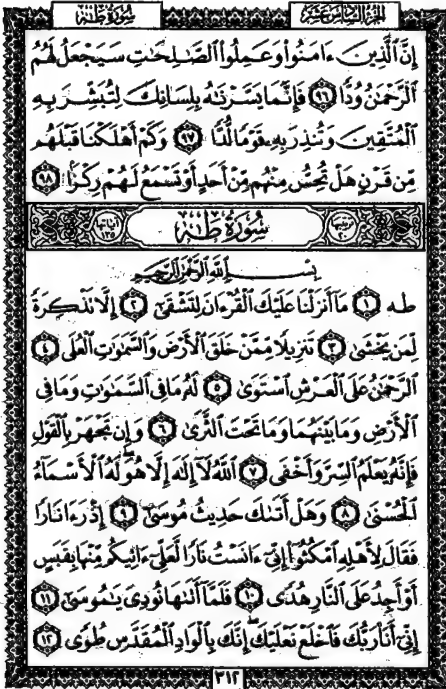 الجزء السادس عشر
سورة طه
إِنَّ ٱلَّذِينَ ءَامَنُوا۟ وَعَمِلُوا۟ ٱلصَّـٰلِحَـٰتِ سَيَجْعَلُ لَهُمُ
ٱلرَّحْمَـٰنُ وُدًّا ٩٦ فَإِنَّمَا يَسَّرْنَـٰهُ بِلِسَانِكَ لِتُبَشِّرَ بِهِ
ٱلْمُتَّقِينَ وَتُنذِرَ بِهِۦ قَوْمًا لُّدًّا ٩٧ وَكَمْ أَهْلَكْنَا قَبْلَهُم
مِّن قَرْنٍ هَلْ تُحِسُّ مِنْهُم مِّنْ أَحَدٍ أَوْ تَسْمَعُ لَهُمْ رِكْزًۢا ٩٨
ترتيبها ٢٠ سورة طه آياتها ١٣٥
بِسْمِ ٱللَّهِ ٱلرَّحْمَـٰنِ ٱلرَّحِيمِ
طه ١ مَآ أَنزَلْنَا عَلَيْكَ ٱلْقُرْءَانَ لِتَشْقَىٰٓ ٢ إِلَّا تَذْكِرَةً
لِّمَن يَخْشَىٰ ٣ تَنزِيلًا مِّمَّنْ خَلَقَ ٱلْأَرْضَ وَٱلسَّمَـٰوَٰتِ ٱلْعُلَى ٤
ٱلرَّحْمَـٰنُ عَلَى ٱلْعَرْشِ ٱسْتَوَىٰ ٥ لَهُۥ مَا فِى ٱلسَّمَـٰوَٰتِ وَمَا فِى
ٱلْأَرْضِ وَمَا بَيْنَهُمَا وَمَا تَحْتَ ٱلثَّرَىٰ ٦ وَإِن تَجْهَرْ بِٱلْقَوْلِ
فَإِنَّهُۥ يَعْلَمُ ٱلسِّرَّ وَأَخْفَى ٧ ٱللَّهُ لَآ إِلَـٰهَ إِلَّا هُوَ ۖ لَهُ ٱلْأَسْمَآءُ
ٱلْحُسْنَىٰ ٨ وَهَلْ أَتَىٰكَ حَدِيثُ مُوسَىٰٓ ٩ إِذْ رَءَا نَارًا
فَقَالَ لِأَهْلِهِ ٱمْكُثُوٓا۟ إِنِّىٓ ءَانَسْتُ نَارًا لَّعَلِّىٓ ءَاتِيكُم مِّنْهَا بِقَبَسٍ
أَوْ أَجِدُ عَلَى ٱلنَّارِ هُدًى ١٠ فَلَمَّآ أَتَىٰهَا نُودِىَ يَـٰمُوسَىٰٓ ١١
إِنِّىٓ أَنَا۠ رَبُّكَ فَٱخْلَعْ نَعْلَيْكَ ۖ إِنَّكَ بِٱلْوَادِ ٱلْمُقَدَّسِ طُوًى ١٢
٣١٢